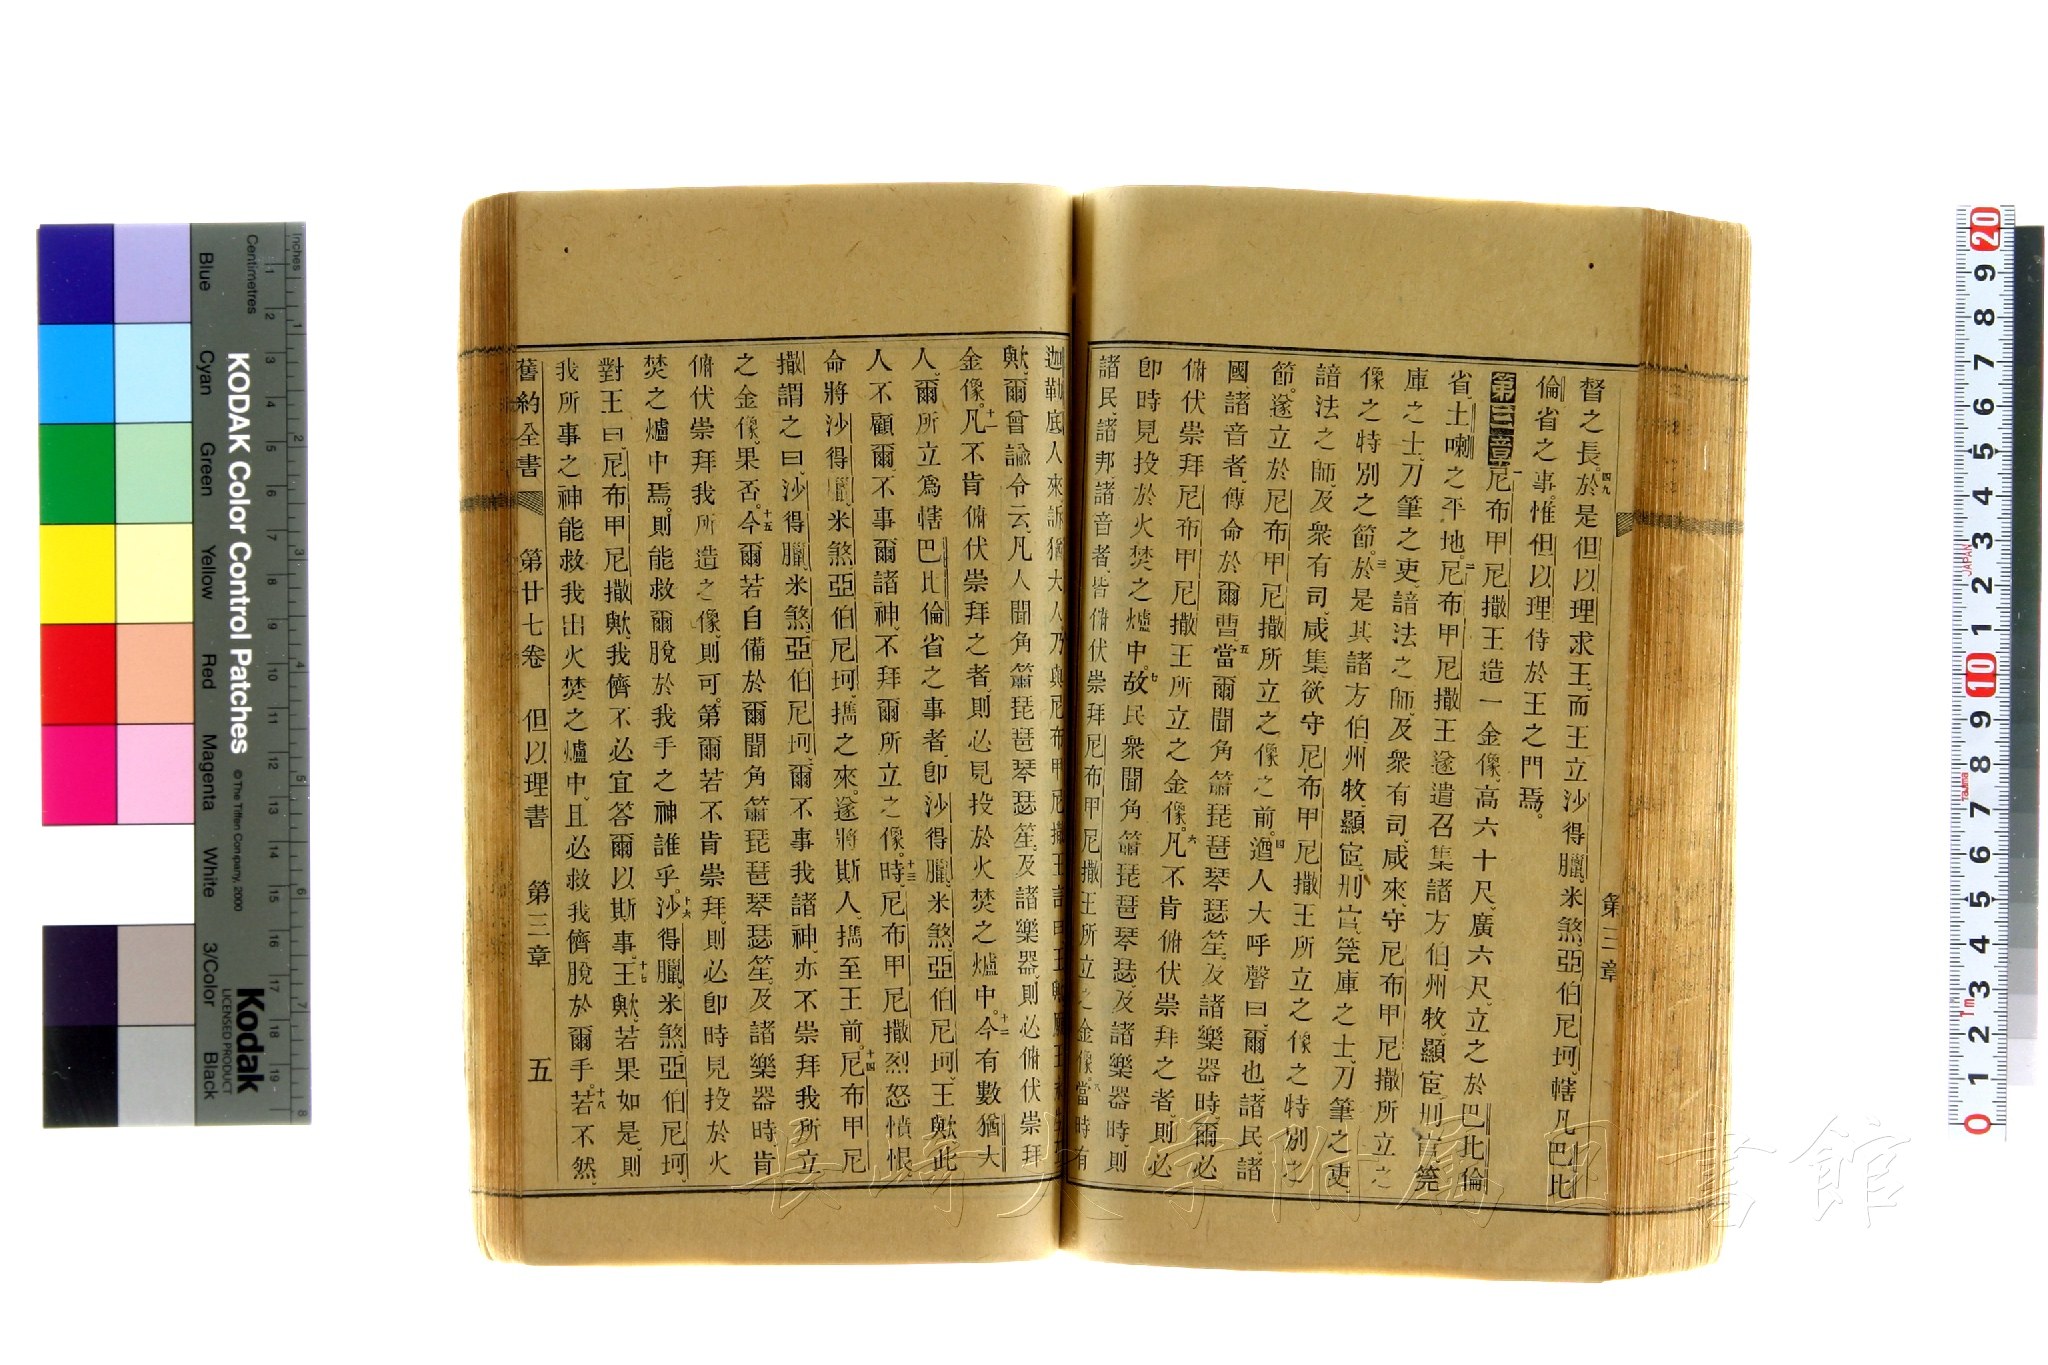 督之長。四九於是但以理求王、而王立沙得臘、米煞、亞伯尼珂、轄凡巴比
倫省之事。惟但以理侍於王之門焉。
第三章一尼布甲尼撒王造一金像、高六十尺、廣六尺、立之於巴比倫
省、土喇之平地。二尼布甲尼撒王遂遣召集諸方伯、州牧、顯宦、刑官、筦
庫之士、刀筆之吏、諳法之師、及衆有司、咸來、守尼布甲尼撒所立之
像之特別之節。三於是其諸方伯、州牧、顯宦、刑官、筦庫之士、刀筆之吏、
諳法之師、及衆有司、咸集欲守尼布甲尼撒王所立之像之特別之
節、遂立於尼布甲尼撒所立之像之前。四遒人大呼聲曰、爾也、諸民、諸
國、諸音者、傳命於爾曹、五當爾聞角簫琵琶琴瑟笙、及諸樂器時、爾必
俯伏崇拜尼布甲尼撒王所立之金像。六凡不肯俯伏崇拜之者、則必
卽時見投於火焚之爐中。七故民衆聞角簫琵琶琴瑟、及諸樂器時、則
諸民、諸邦、諸音者、皆俯伏崇拜尼布甲尼撒王所立之金像。八當時有
第三章
迦勒底人來、訴猶大人乃與尼布甲尼撒王言曰、王歟
歟、爾曾諭令云、凡人聞角簫琵琶琴瑟笙、及諸樂器、則必俯伏崇拜
金像。十一凡不肯俯伏崇拜之者、則必見投於火焚之爐中。十二今有數猶大
人、爾所立爲轄巴比倫省之事者、卽沙得臘、米煞、亞伯尼珂、王歟、此
人不顧爾、不事爾諸神、不拜爾所立之像。十三時、尼布甲尼撒烈怒憤恨、
命將沙得臘、米煞、亞伯尼珂、攜之來。遂將斯人、攜至王前。十四尼布甲尼
撒謂之曰、沙得臘、米煞、亞伯尼珂、爾不事我諸神、亦不崇拜我所立
之金像、果否。十五今爾若自備於爾聞角簫琵琶琴瑟笙、及諸樂器時、肯
俯伏崇拜我所造之像、則可。第爾若不肯崇拜、則必卽時見投於火
焚之爐中焉。則能救爾脫於我手之神誰乎。十六沙得臘、米煞、亞伯尼珂、
對王曰、尼布甲尼撒歟、我儕不必宜答爾以斯事。十七王歟、若果如是、則
我所事之神能救我出火焚之爐中、且必救我儕脫於爾手。十八若不然、
舊約全書 第廿七卷 但以理書 第三章 五
KODAK Color Control Patches
©The Tiffen Company, 2000
Kodak
LICENSED PRODUCT
Inches
Centimetres
Blue Cyan Green Yellow Red Magenta White 3/Color Black
JAPAN
Tajima
1m
長崎大学附属図書館